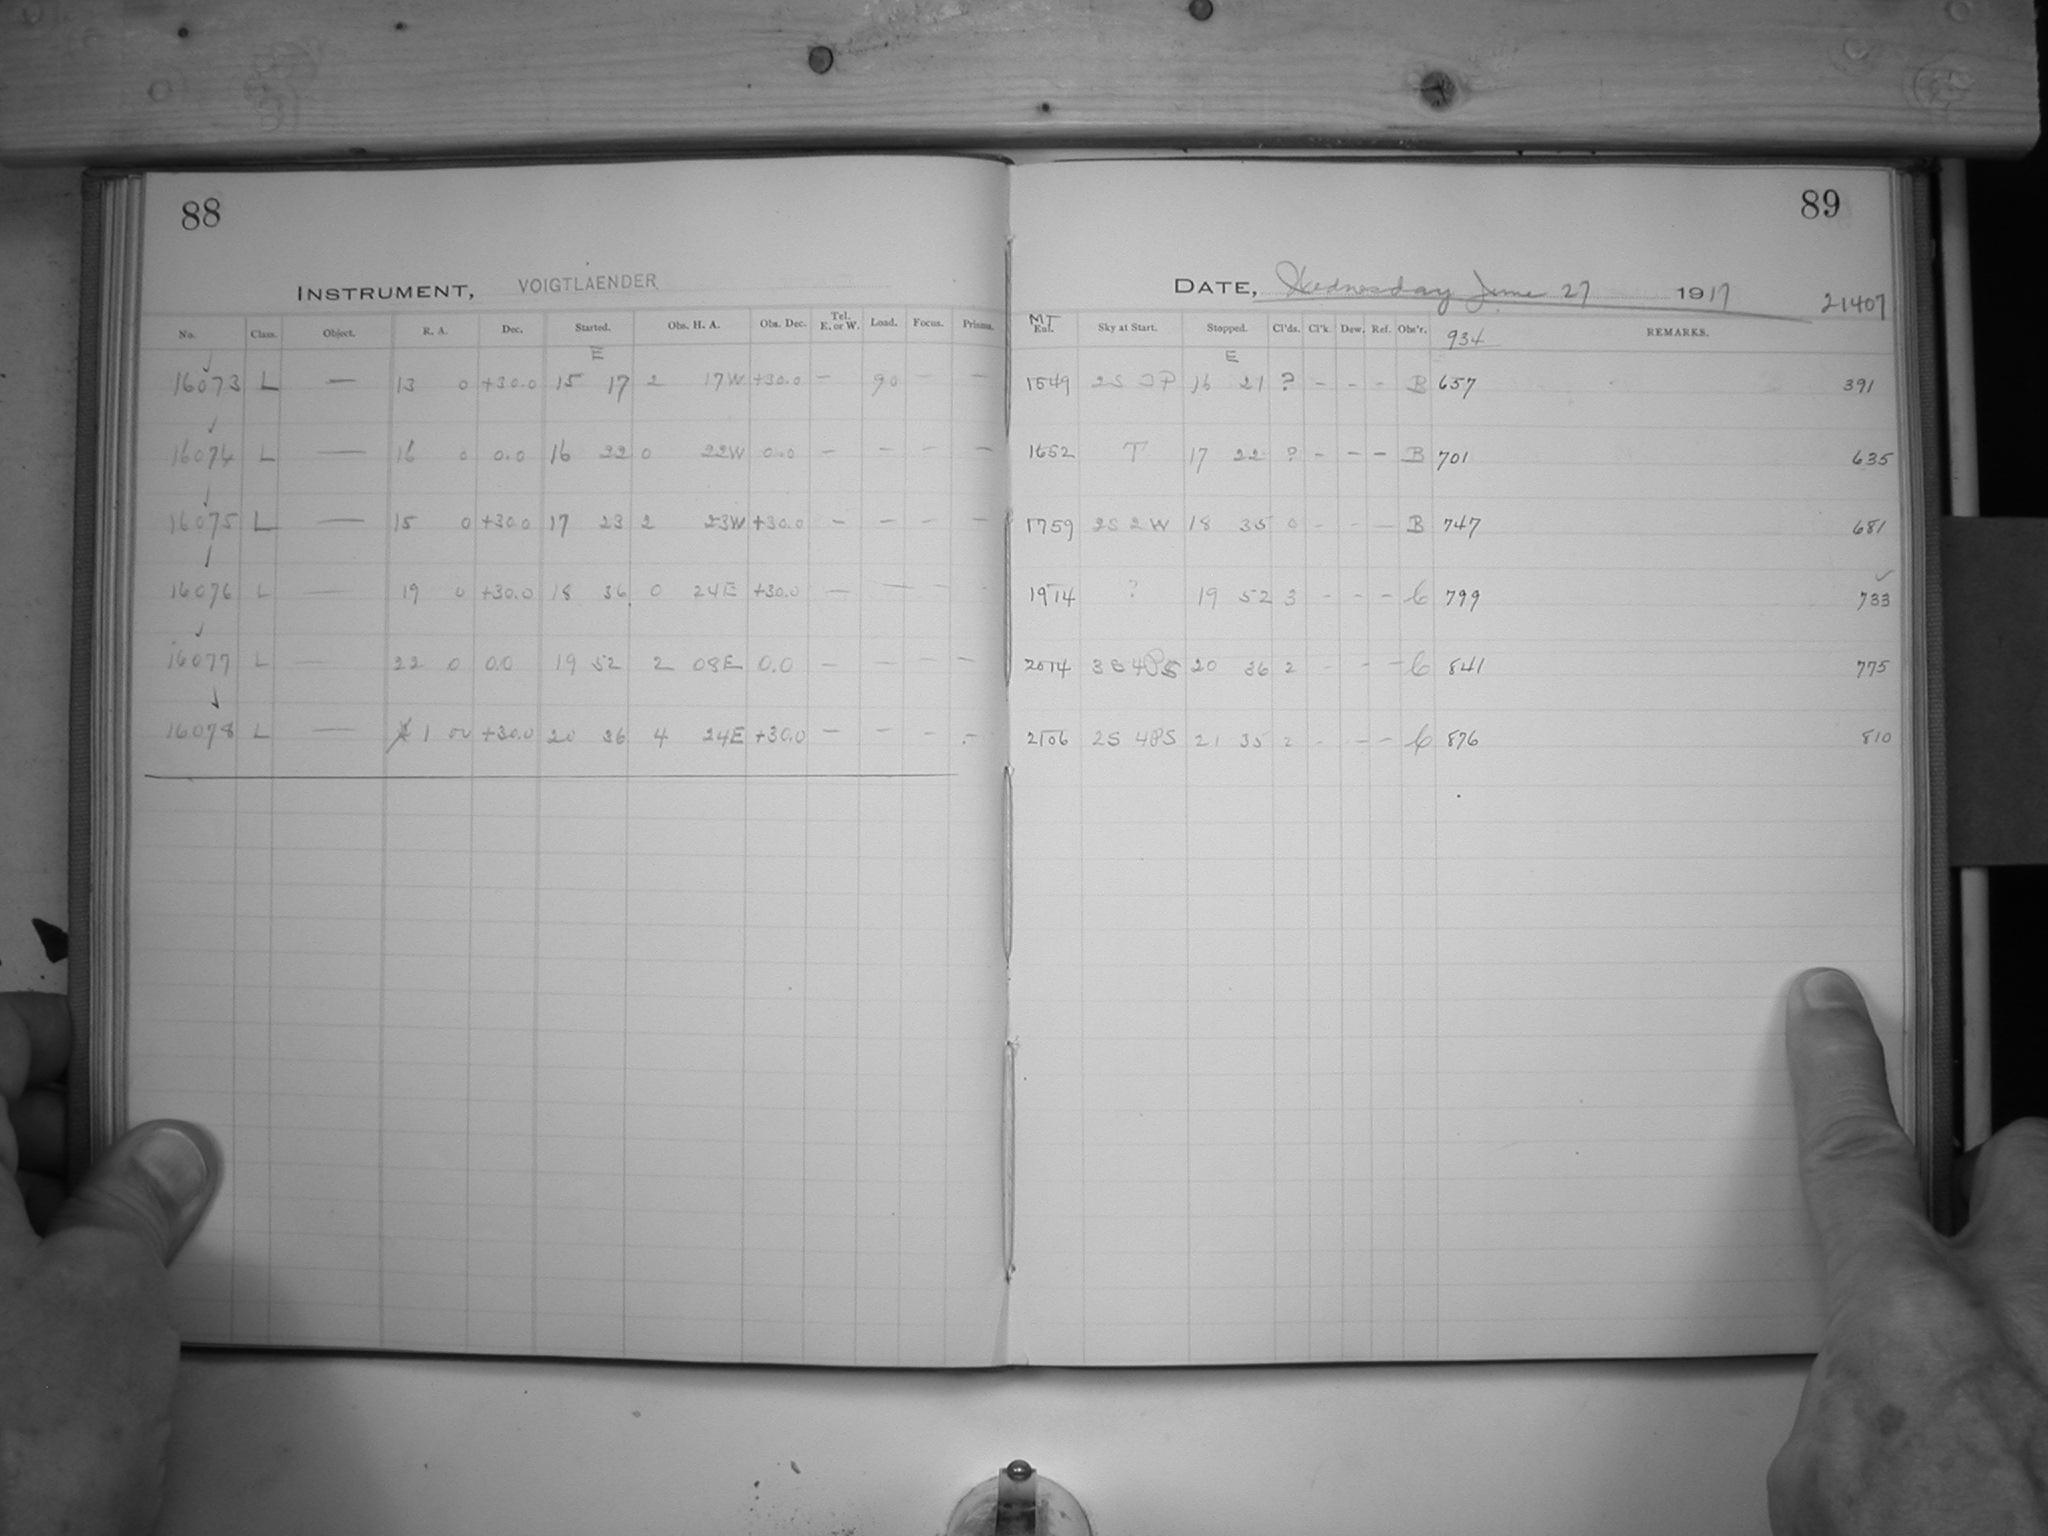 88
INSTRUMENT, VOIGTLAENDER
No. Class. Object. R. A. Dec. Started. Obs. H. A. Obs. Dec. Tel. E. or W. Load. Focus. Prisms.
E
16073 L — 13 0 +30.0 15 17 2 17W +30.0 — 90 — —
16074 L — 16 0 0.0 16 22 0 22W 0.0 — — — —
16075 L — 15 0 +30.0 17 23 2 23W +30.0 — — — —
16076 L — 19 0 +30.0 18 36 0 24E +30.0 — — — -
16077 L — 22 0 0.0 19 52 2 08E 0.0 — — — —
16078 L — 1 00 +30.0 20 36 4 24E +30.0 — — — —
89
DATE, Wednesday June 27 1917
21407
MT Ent. Sky at Start. Stopped. Cl'ds. Cl'k. Dew. Ref. Obs'r. 934 REMARKS.
E
1549 2S 16 21 ? - - - B 657 391
1652 T 17 22 ? - - - B 701 635
1759 2S 2W 18 35 0 - - — B 747 681
1914 ? 19 52 3 - - - C 799 733
2014 3S 4PS 20 36 2 - - - C 841 775
2106 2S 4PS 21 35 2 - - - C 876 810